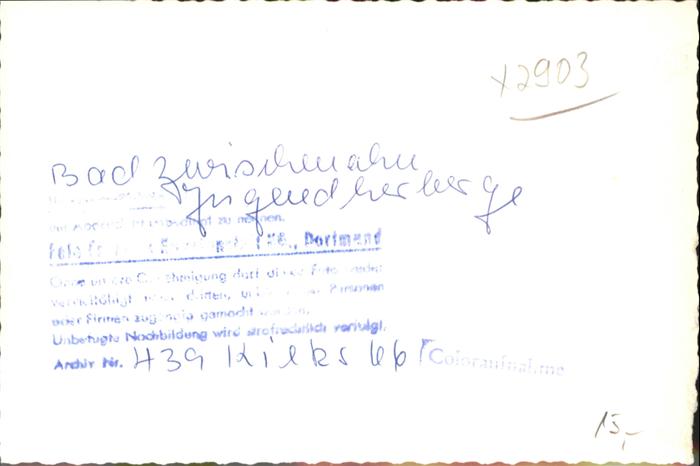 x2903
Bad Zwischenahn
Jugendherberge
zu nennen.
Dortmund
Ohne unsere Genehmigung darf dieses Foto weder
vervielfältigt noch dritten, Personen
oder Firmen zugängig gemacht werden.
Unbefugte Nachbildung wird strafrechtlich verfolgt.
Archiv Nr. 439 66 Coloraufnahme
15,-